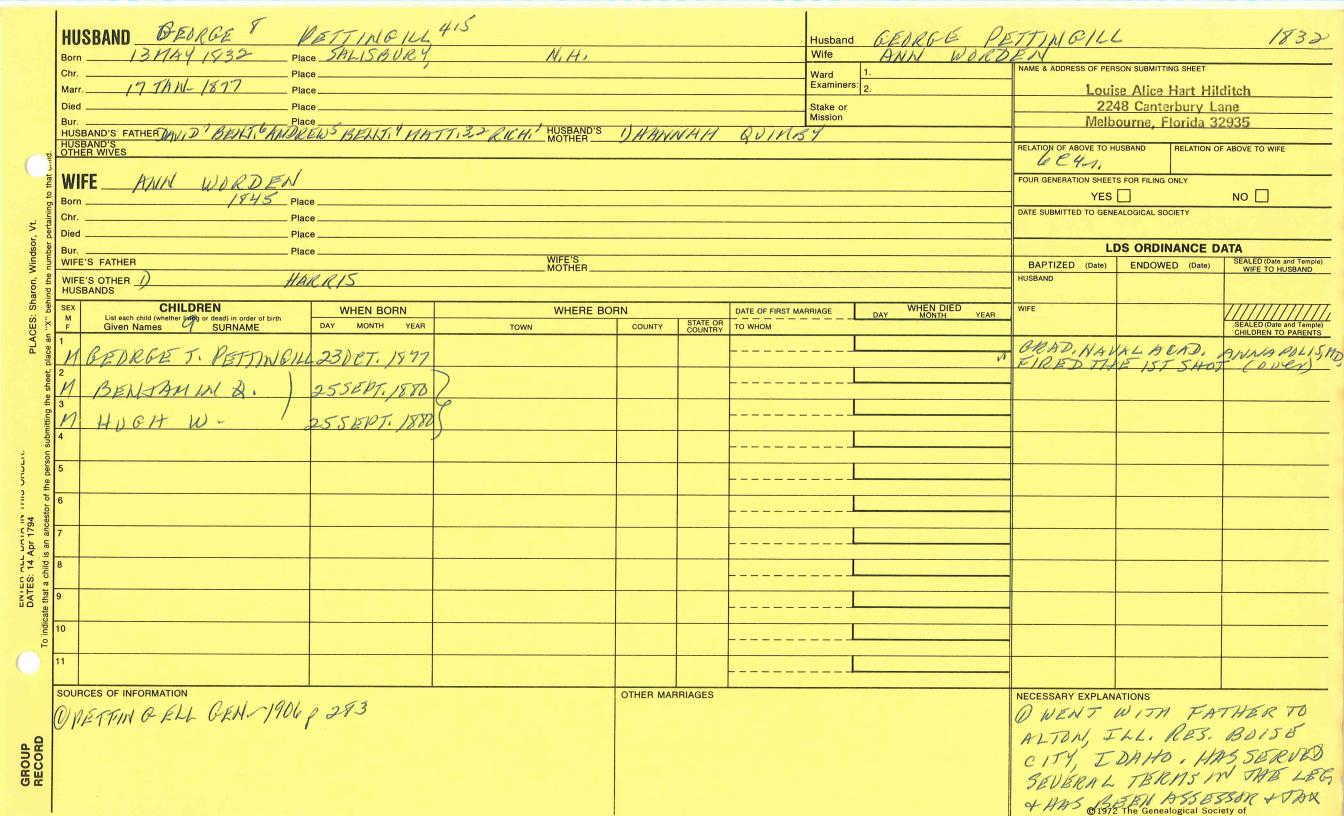 HUSBAND GEORGE 8 PETTINGILL 415
Born 13 MAY 1832 Place SALISBURY, N.H.
Chr. Place
Marr. 17 JAN - 1877 Place
Died Place
Bur. Place
HUSBAND'S FATHER DAVID 7 BENJ. 6 ANDREW 5 BENJ. 4 MATT. 3,2 RICH. 1 HUSBAND'S MOTHER 1) HANNAH QUIMBY
HUSBAND'S OTHER WIVES
Husband GEORGE PETTINGILL 1832
Wife ANN WORDEN
Ward Examiners: 1.
2.
Stake or Mission
NAME & ADDRESS OF PERSON SUBMITTING SHEET
Louise Alice Hart Hilditch
2248 Canterbury Lane
Melbourne, Florida 32935
RELATION OF ABOVE TO HUSBAND RELATION OF ABOVE TO WIFE
FOUR GENERATION SHEETS FOR FILING ONLY
YES NO
DATE SUBMITTED TO GENEALOGICAL SOCIETY
WIFE ANN WORDEN
Born 1845 Place
Chr. Place
Died Place
Bur. Place
WIFE'S FATHER WIFE'S MOTHER
WIFE'S OTHER HUSBANDS 1) HARRIS
LDS ORDINANCE DATA
BAPTIZED (Date) ENDOWED (Date) SEALED (Date and Temple) WIFE TO HUSBAND
HUSBAND
WIFE
SEALED (Date and Temple) CHILDREN TO PARENTS
SEX M F
CHILDREN
List each child (whether living or dead) in order of birth
Given Names 9 SURNAME
WHEN BORN
DAY MONTH YEAR
WHERE BORN
TOWN COUNTY STATE OR COUNTRY
DATE OF FIRST MARRIAGE
TO WHOM
WHEN DIED
DAY MONTH YEAR
1 M GEORGE T. PETTINGILL 23 OCT. 1877 GRAD. NAVAL ACAD. ANNAPOLIS, MD
FIRED THE 1ST SHOT (over)
2 M BENJAMIN Q. 25 SEPT. 1880
3 M HUGH W - 25 SEPT. 1880
4
5
6
7
8
9
10
11
SOURCES OF INFORMATION
① PETTINGELL GEN - 1906 p 283
OTHER MARRIAGES
NECESSARY EXPLANATIONS
① WENT WITH FATHER TO
ALTON, ILL. RES. BOISE
CITY, IDAHO. HAS SERVED
SEVERAL TERMS IN THE LEG
+ HAS BEEN ASSESSOR + TAX
©1972 The Genealogical Society of
PLACES: Sharon, Windsor, Vt.
ENTER ALL DATA IN THIS ORDER:
DATES: 14 Apr 1794
To indicate that a child is an ancestor of the person submitting the sheet, place an "X" behind the number pertaining to that child.
GROUP RECORD